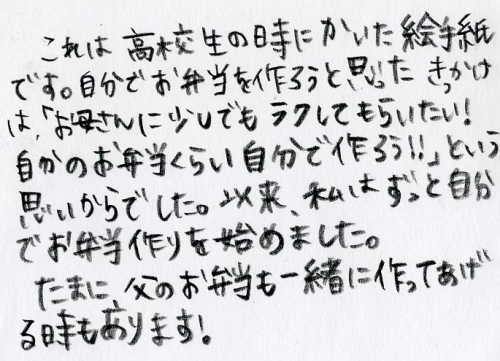 これは高校生の時にかいた絵手紙
です。自分でお弁当を作ろうと思ったきっかけ
は、「お母さんに少しでもラクしてもらいたい!
自分のお弁当くらい自分で作ろう!!」という
思いからでした。以来、私はずっと自分
でお弁当作りを始めました。
たまに、父のお弁当も一緒に作ってあげ
る時もあります!